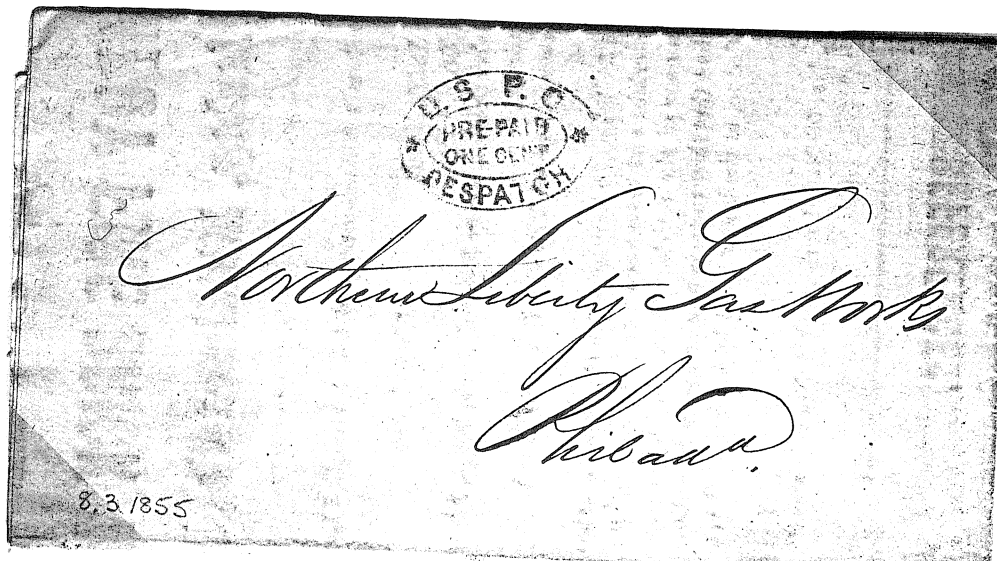 U.S.P.O
PRE-PAID
ONE CENT
DESPATCH
Northern Liberty Gas Works
Philada
8.3.1855